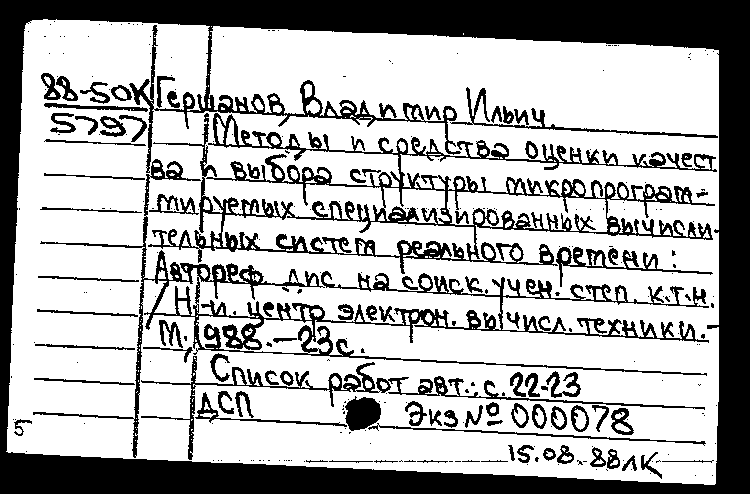 88-50К
5797
Гершанов, Владимир Ильич.
Методы и средства оценки качест
ва и выбора структуры микропрограм-
мируемых специализированных вычисли-
тельных систем реального времени:
Автореф. дис. на соиск. учен. степ. к.т.н.
/ Н.-и. центр электрон. вычисл. техники.-
М., 1988.-23с.
Список работ авт.: с. 22-23
ДСП Экз № 000078
5
15.08.88ЛК